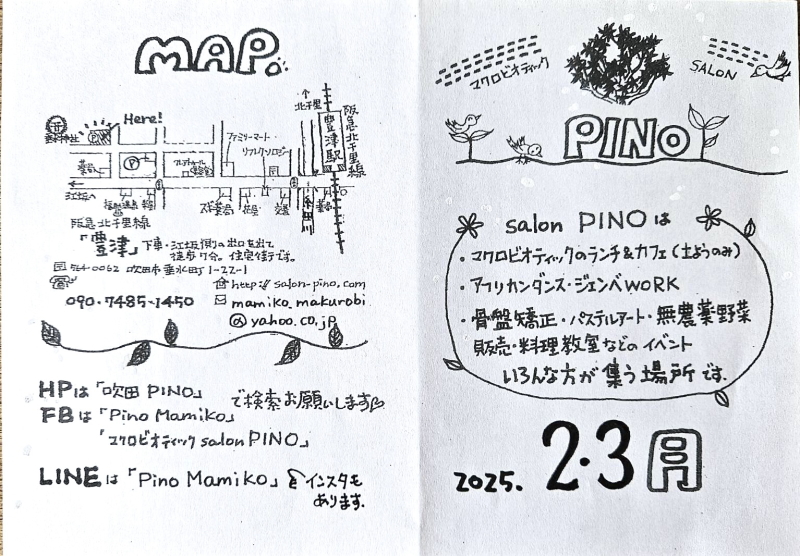 MAP
Here!
北千里
阪急北千里線
豊津駅
ファミリーマート
リフレクソロジー
薬局
江坂へ
スギ薬局
花屋
交番
阪急北千里線
「豊津」下車・江坂側の出口を出て
徒歩7分。住宅街です。
〒564-0062 吹田市垂水町1-22-1
http://salon-pino.com
090-7485-1450
mamiko_makurobi
@yahoo.co.jp
HPは「吹田 PINO」
で検索お願いします
FBは「Pino Mamiko」
「マクロビオティック salon PINO」
LINEは「Pino Mamiko」
インスタも
あります.
マクロビオティック
SALON
PINO
salon PINOは
・マクロビオティックのランチ&カフェ(土ようのみ)
・アフリカンダンス・ジェンベWORK
・骨盤矯正・パステルアート・無農薬野菜
販売・料理教室などのイベント
いろんな方が集う場所です.
2025. 2・3月